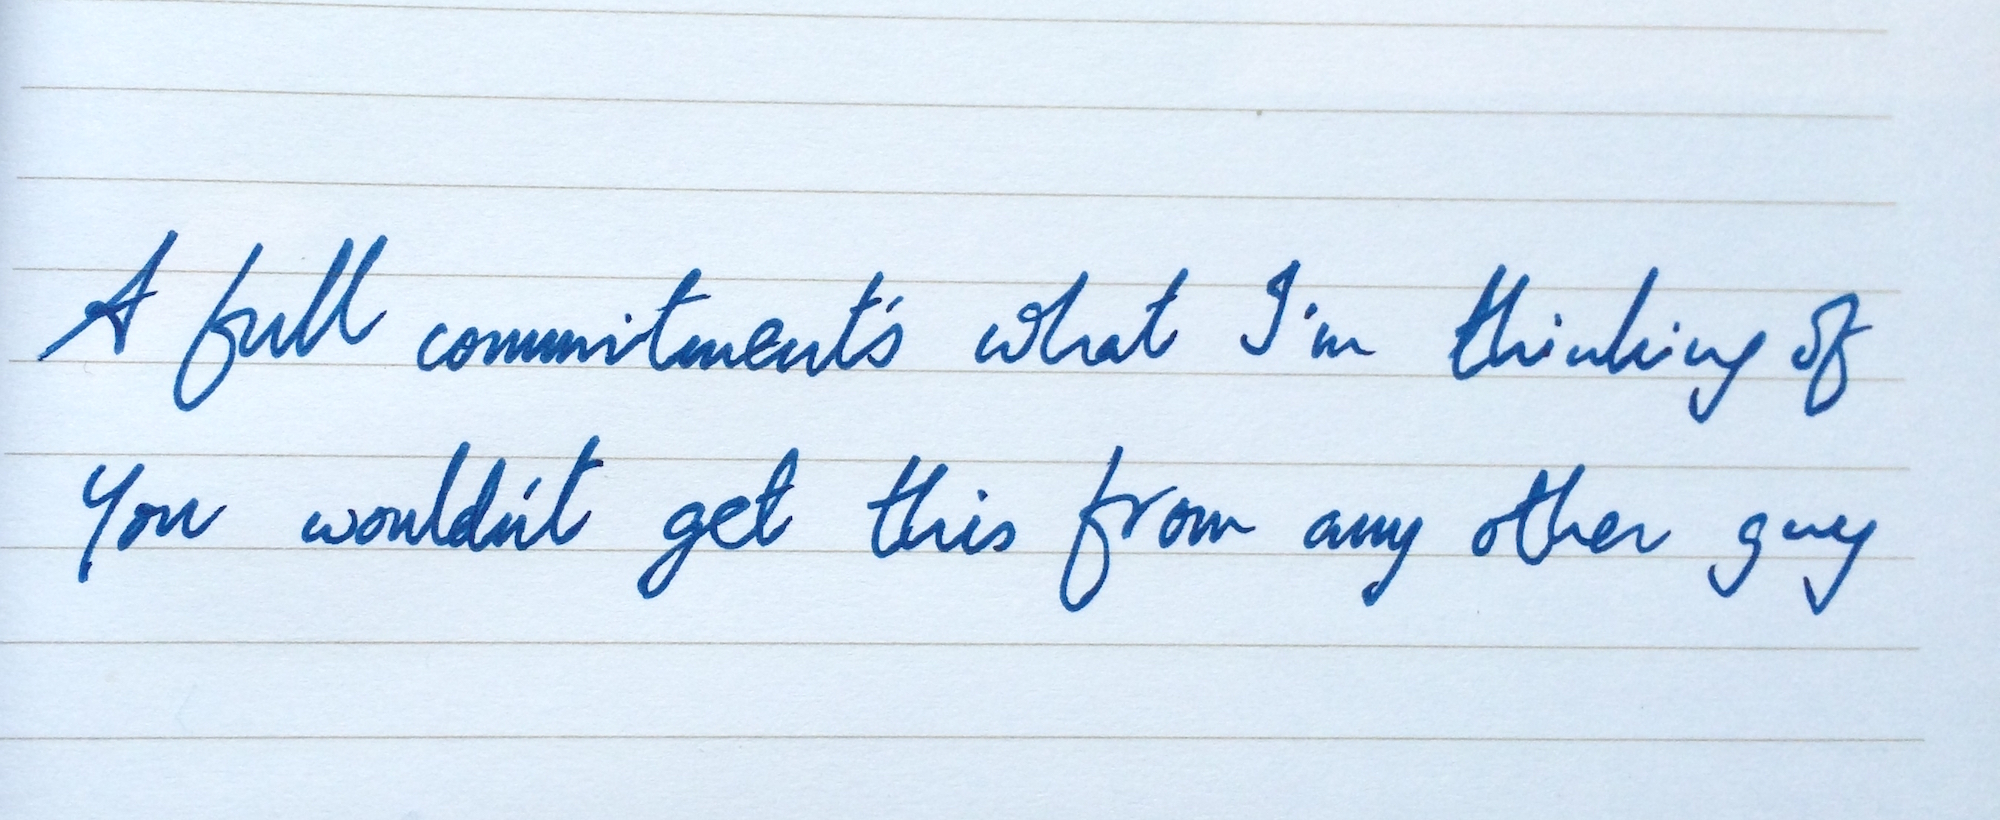 A full commitment's what I'm thinking of
You wouldn't get this from any other guy